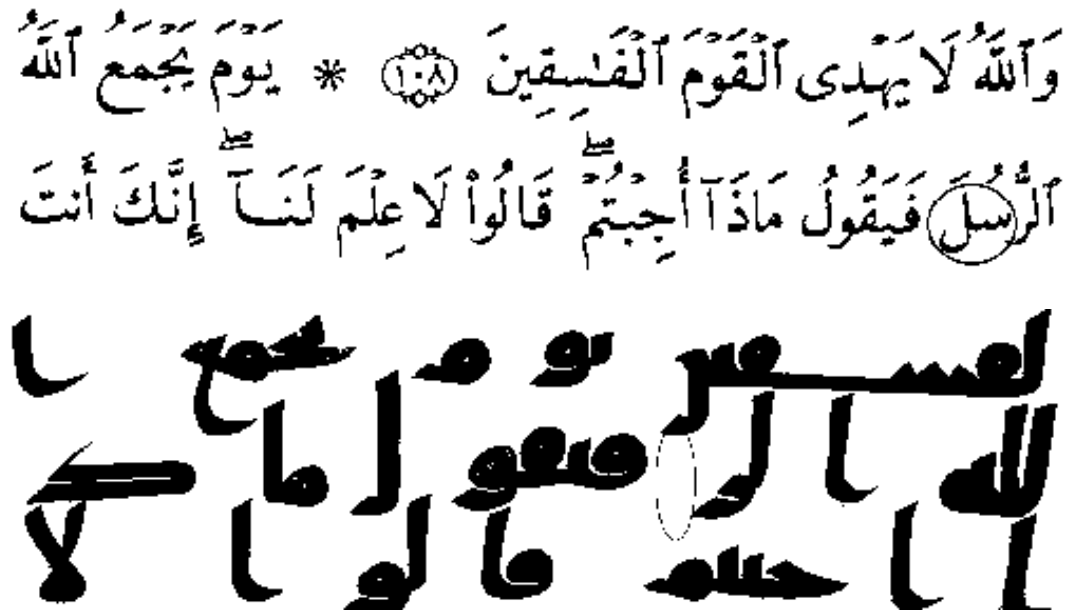 وَٱللَّهُ لَا يَهْدِى ٱلْقَوْمَ ٱلْفَـٰسِقِينَ ١٠٨ * يَوْمَ يَجْمَعُ ٱللَّهُ
ٱلرُّسُلَ فَيَقُولُ مَاذَآ أُجِبْتُمْ ۖ قَالُوا۟ لَا عِلْمَ لَنَآ ۖ إِنَّكَ أَنتَ
لفسقين يو م يجمع ا
لله ا لر فيقو ل ما ذ
ا ا جبتم قا لو ا لا